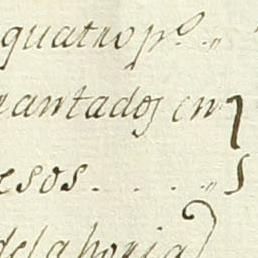 quatro p.º „
rantados en
esos . . . . „ S
delahoria